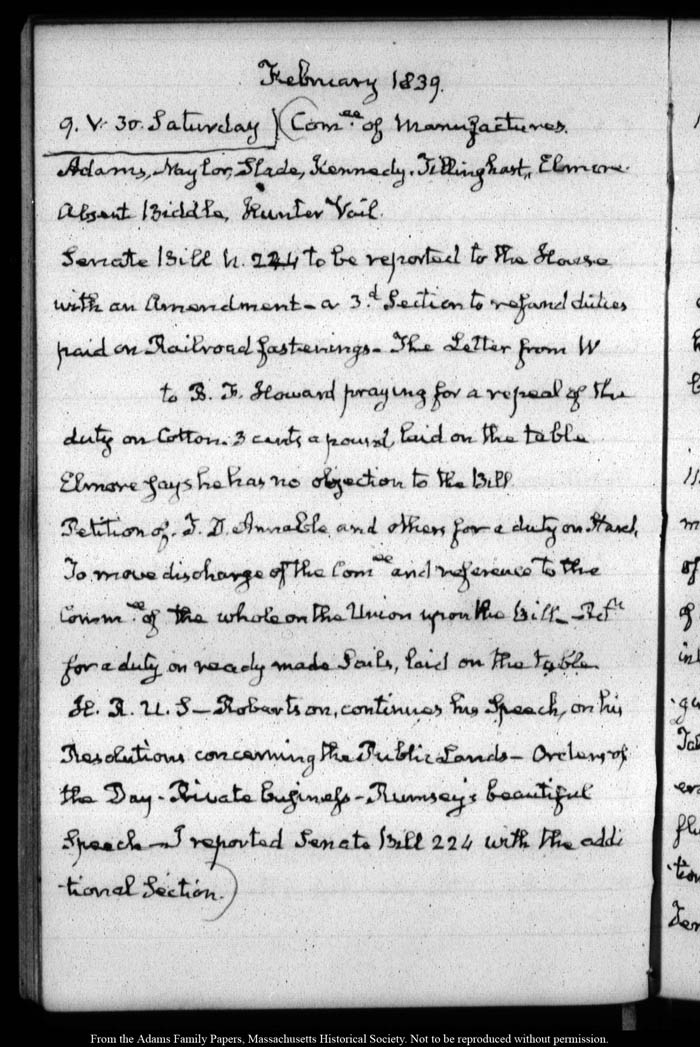 February 1839.
9. V. 30. Saturday (Comee. of Manufactures.
Adams, Naylor, Slade, Kennedy. Tillinghast, Elmore.
Absent Biddle, Hunter Vail.
Senate Bill N. 224 to be reported to the House
with an Amendment – a 3.d Section to refund duties
paid on Railroad fastenings – The Letter from W
to B. F. Howard praying for a repeal of the
duty on Cotton. 3 cents a pound, laid on the table
Elmore says he has no objection to the Bill
Petition of. F. D. Annable and others for a duty on
To move discharge of the Comee and reference to the
Commee. of the whole on the Union upon the Bill –
for a duty on ready made Sails, laid on the table
H. R. U. S – Robertson, continues his Speech, on his
Resolutions concerning the Public Lands – Orders of
the Day – Private business – Rumsey's beautiful
Speech – I reported Senate Bill 224 with the addi
tional Section.)
From the Adams Family Papers, Massachusetts Historical Society. Not to be reproduced without permission.